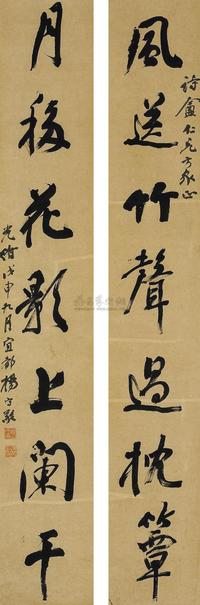 诗盦仁兄方家正
風送竹聲過枕簟
月移花影上闌干
光緒戊申九月宜都楊守敬